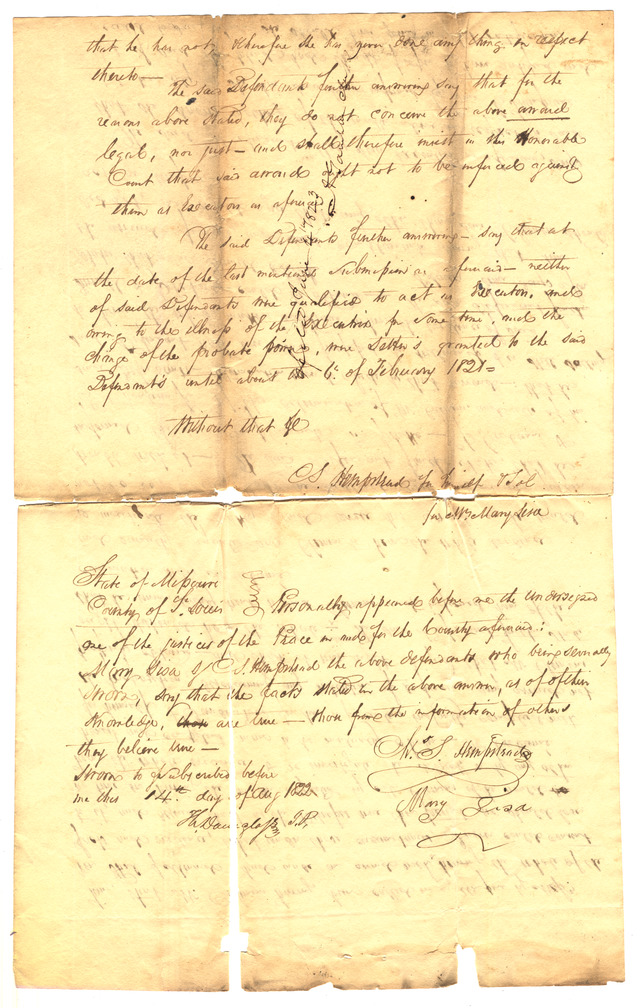 that he has not, therefore she has never done any thing in respect
thereto —
The said Defendants further answering say that for the
reasons above stated, they do not conceive the above award
legal, nor just — and shall therefore insist in this Honorable
Court that said award ought not to be inforced against
them as Executors as aforesaid
The said Defendants further answering — say that at
the date of the last mentioned submission as aforesaid — neither
of said Defendants were qualified to act as Executors, and
owing to the illness of the Executrix for some time, and the
change of the probate , were Letters granted to the said
Defendants until about the 6th of February 1821 =
Without that &c
S. Hempstead for himself & Sol
for Mrs Mary Lisa
State of Missouri
County of St Louis Personally appeared before me the undersigned
one of the justices of the Peace in and for the County aforesaid:
Mary Lisa & S. Hempstead the above defendants who being severally
sworn, say that the facts stated in the above answer, as of their
knowledge, are true — those from the information of others
they believe true —
Sworn to & subscribed before
me this 14th day of Aug 1822
S. Hempstead
Mary Lisa
J.P.